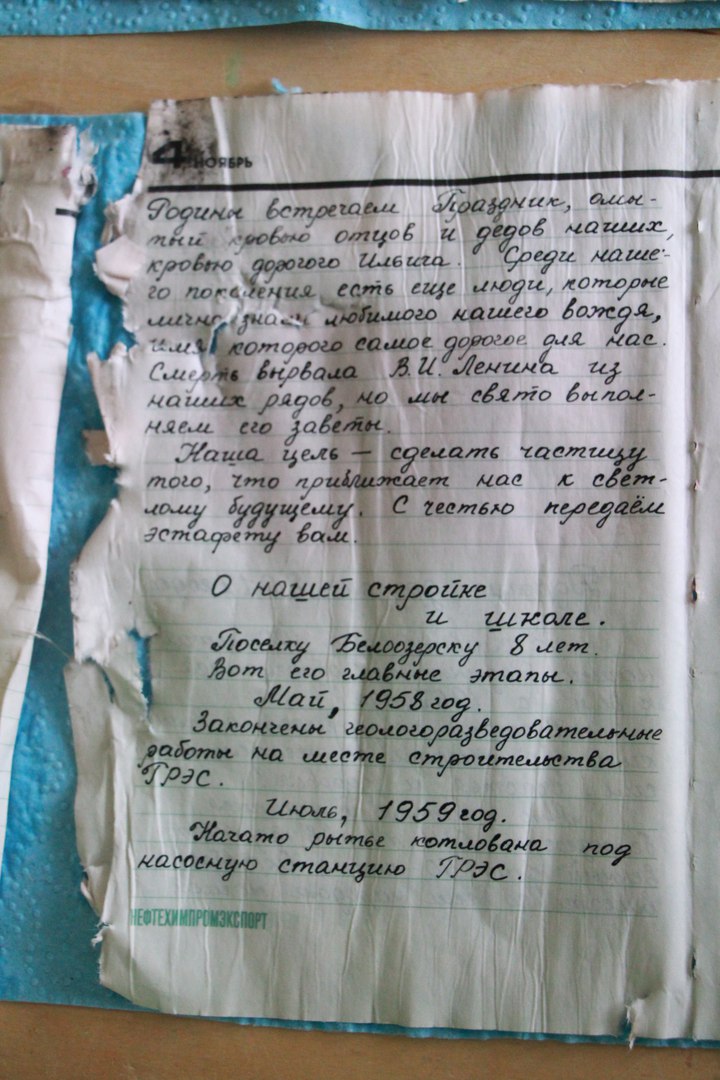 4 НОЯБРЬ
Родины встречаем Праздник, омы-
тый кровью отцов и дедов наших,
кровью дорогого Ильича. Среди наше-
го поколения есть еще люди, которые
лично знали любимого нашего вождя,
имя которого самое дорогое для нас.
Смерть вырвала В.И. Ленина из
наших рядов, но мы свято выпол-
няем его заветы.
Наша цель — сделать частицу
того, что приближает нас к свет-
лому будущему. С честью передаём
эстафету вам.
О нашей стройке
и школе.
Поселку Белоозерску 8 лет.
Вот его главные этапы.
Май, 1958 год.
Закончены геологоразведовательные
работы на месте строительства
ГРЭС.
Июль, 1959 год.
Начато рытье котлована под
насосную станцию ГРЭС.
НЕФТЕХИМПРОМЭКСПОРТ